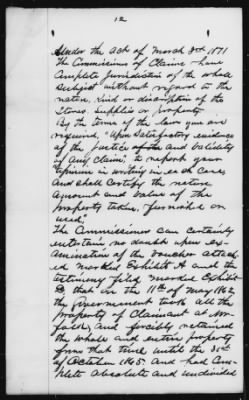 12
Under the Act of March 3rd 1871
The Commissions of Claims have
Complete Jurisdiction of the whole
subject without regard to the
nature, kind or discription of the
Stores Supplies or property.
By the terms of the law you are
required, "Upon Satisfactory evidence
of the justice of the and Validity
of any Claim; to report your
opinion in writing in each case
And shall certify the nature
amount and value of the
property taken, furnished or
used."
The Commissioners Can certainly
entertain no doubt upon ex-
amination of the voucher attach-
ed marked Exhibit A and the
testimony filed marked Exhibit
that on the 11th of May 1862
the Government took all the
property of Claimant at Nor-
folk, and forcibly retained
the whole and entire property
from that time until the 31st
of October 1865. and had Com-
plete Absolute and undivided